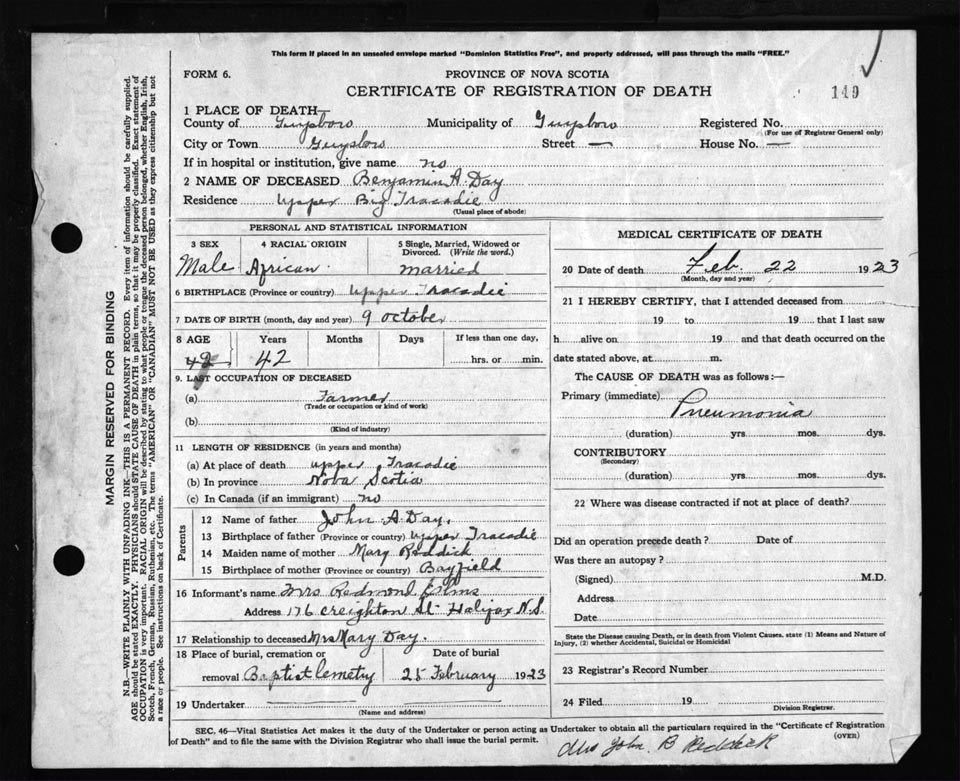 This form if placed in an unsealed envelope marked "Dominion Statistics Free", and properly addressed, will pass through the mails "FREE."
FORM 6.
PROVINCE OF NOVA SCOTIA
CERTIFICATE OF REGISTRATION OF DEATH
149
1 PLACE OF DEATH—
County of Guysboro Municipality of Guysboro Registered No.
(For use of Registrar General only)
City or Town Guysboro Street — House No. —
If in hospital or institution, give name no
2 NAME OF DECEASED Benjamin A. Day
Residence Upper Big Tracadie
(Usual place of abode)
PERSONAL AND STATISTICAL INFORMATION
3 SEX 4 RACIAL ORIGIN 5 Single, Married, Widowed or Divorced. (Write the word.)
Male African. married
6 BIRTHPLACE (Province or country) Upper Tracadie
7 DATE OF BIRTH (month, day and year) 9 october
8 AGE Years Months Days If less than one day,
42 42 hrs. or min.
9. LAST OCCUPATION OF DECEASED
(a) Farmer
(Trade or occupation or kind of work)
(b)
(Kind of industry)
11 LENGTH OF RESIDENCE (in years and months)
(a) At place of death upper Tracadie
(b) In province Nova Scotia
(c) In Canada (if an immigrant) no
Parents
12 Name of father John A Day.
13 Birthplace of father (Province or country) Upper Tracadie
14 Maiden name of mother Mary Reddick
15 Birthplace of mother (Province or country) Bayfield
16 Informant's name Mrs Redmond Elms
Address 176 Creighton St Halifax N.S.
17 Relationship to deceased Mrs Mary Day.
18 Place of burial, cremation or Date of burial
removal Baptist Cemetry 25 February 1923
19 Undertaker
(Name and address)
MEDICAL CERTIFICATE OF DEATH
20 Date of death Feb. 22 1923
(Month, day and year)
21 I HEREBY CERTIFY, that I attended deceased from
19 to 19 that I last saw
h alive on 19 and that death occurred on the
date stated above, at m.
The CAUSE OF DEATH was as follows:—
Primary (immediate) Pneumonia
(duration) yrs. mos. dys.
CONTRIBUTORY
(Secondary)
(duration) yrs. mos. dys.
22 Where was disease contracted if not at place of death?
Did an operation precede death? Date of
Was there an autopsy?
(Signed) M.D.
Address
Date
State the Disease causing Death, or in death from Violent Causes, state (1) Means and Nature of Injury, (2) whether Accidental, Suicidal or Homicidal
23 Registrar's Record Number
24 Filed 19
Division Registrar.
SEC. 46—Vital Statistics Act makes it the duty of the Undertaker or person acting as Undertaker to obtain all the particulars required in the "Certificate of Registration
of Death" and to file the same with the Division Registrar who shall issue the burial permit.
(OVER)
Mrs John B Reddick
MARGIN RESERVED FOR BINDING
N.B.—WRITE PLAINLY WITH UNFADING INK—THIS IS A PERMANENT RECORD. Every item of information should be carefully supplied.
AGE should be stated EXACTLY. PHYSICIANS should STATE CAUSE OF DEATH in plain terms, so that it may be properly classified. Exact statement of
OCCUPATION is very important. RACIAL ORIGIN will be described by stating to what people or tongue the deceased person belonged, whether English, Irish,
Scotch, French, German, Russian, Ruthenian, etc. The terms "AMERICAN" OR "CANADIAN" MUST NOT BE USED as they express citizenship but not
a race or people. See instructions on back of Certificate.